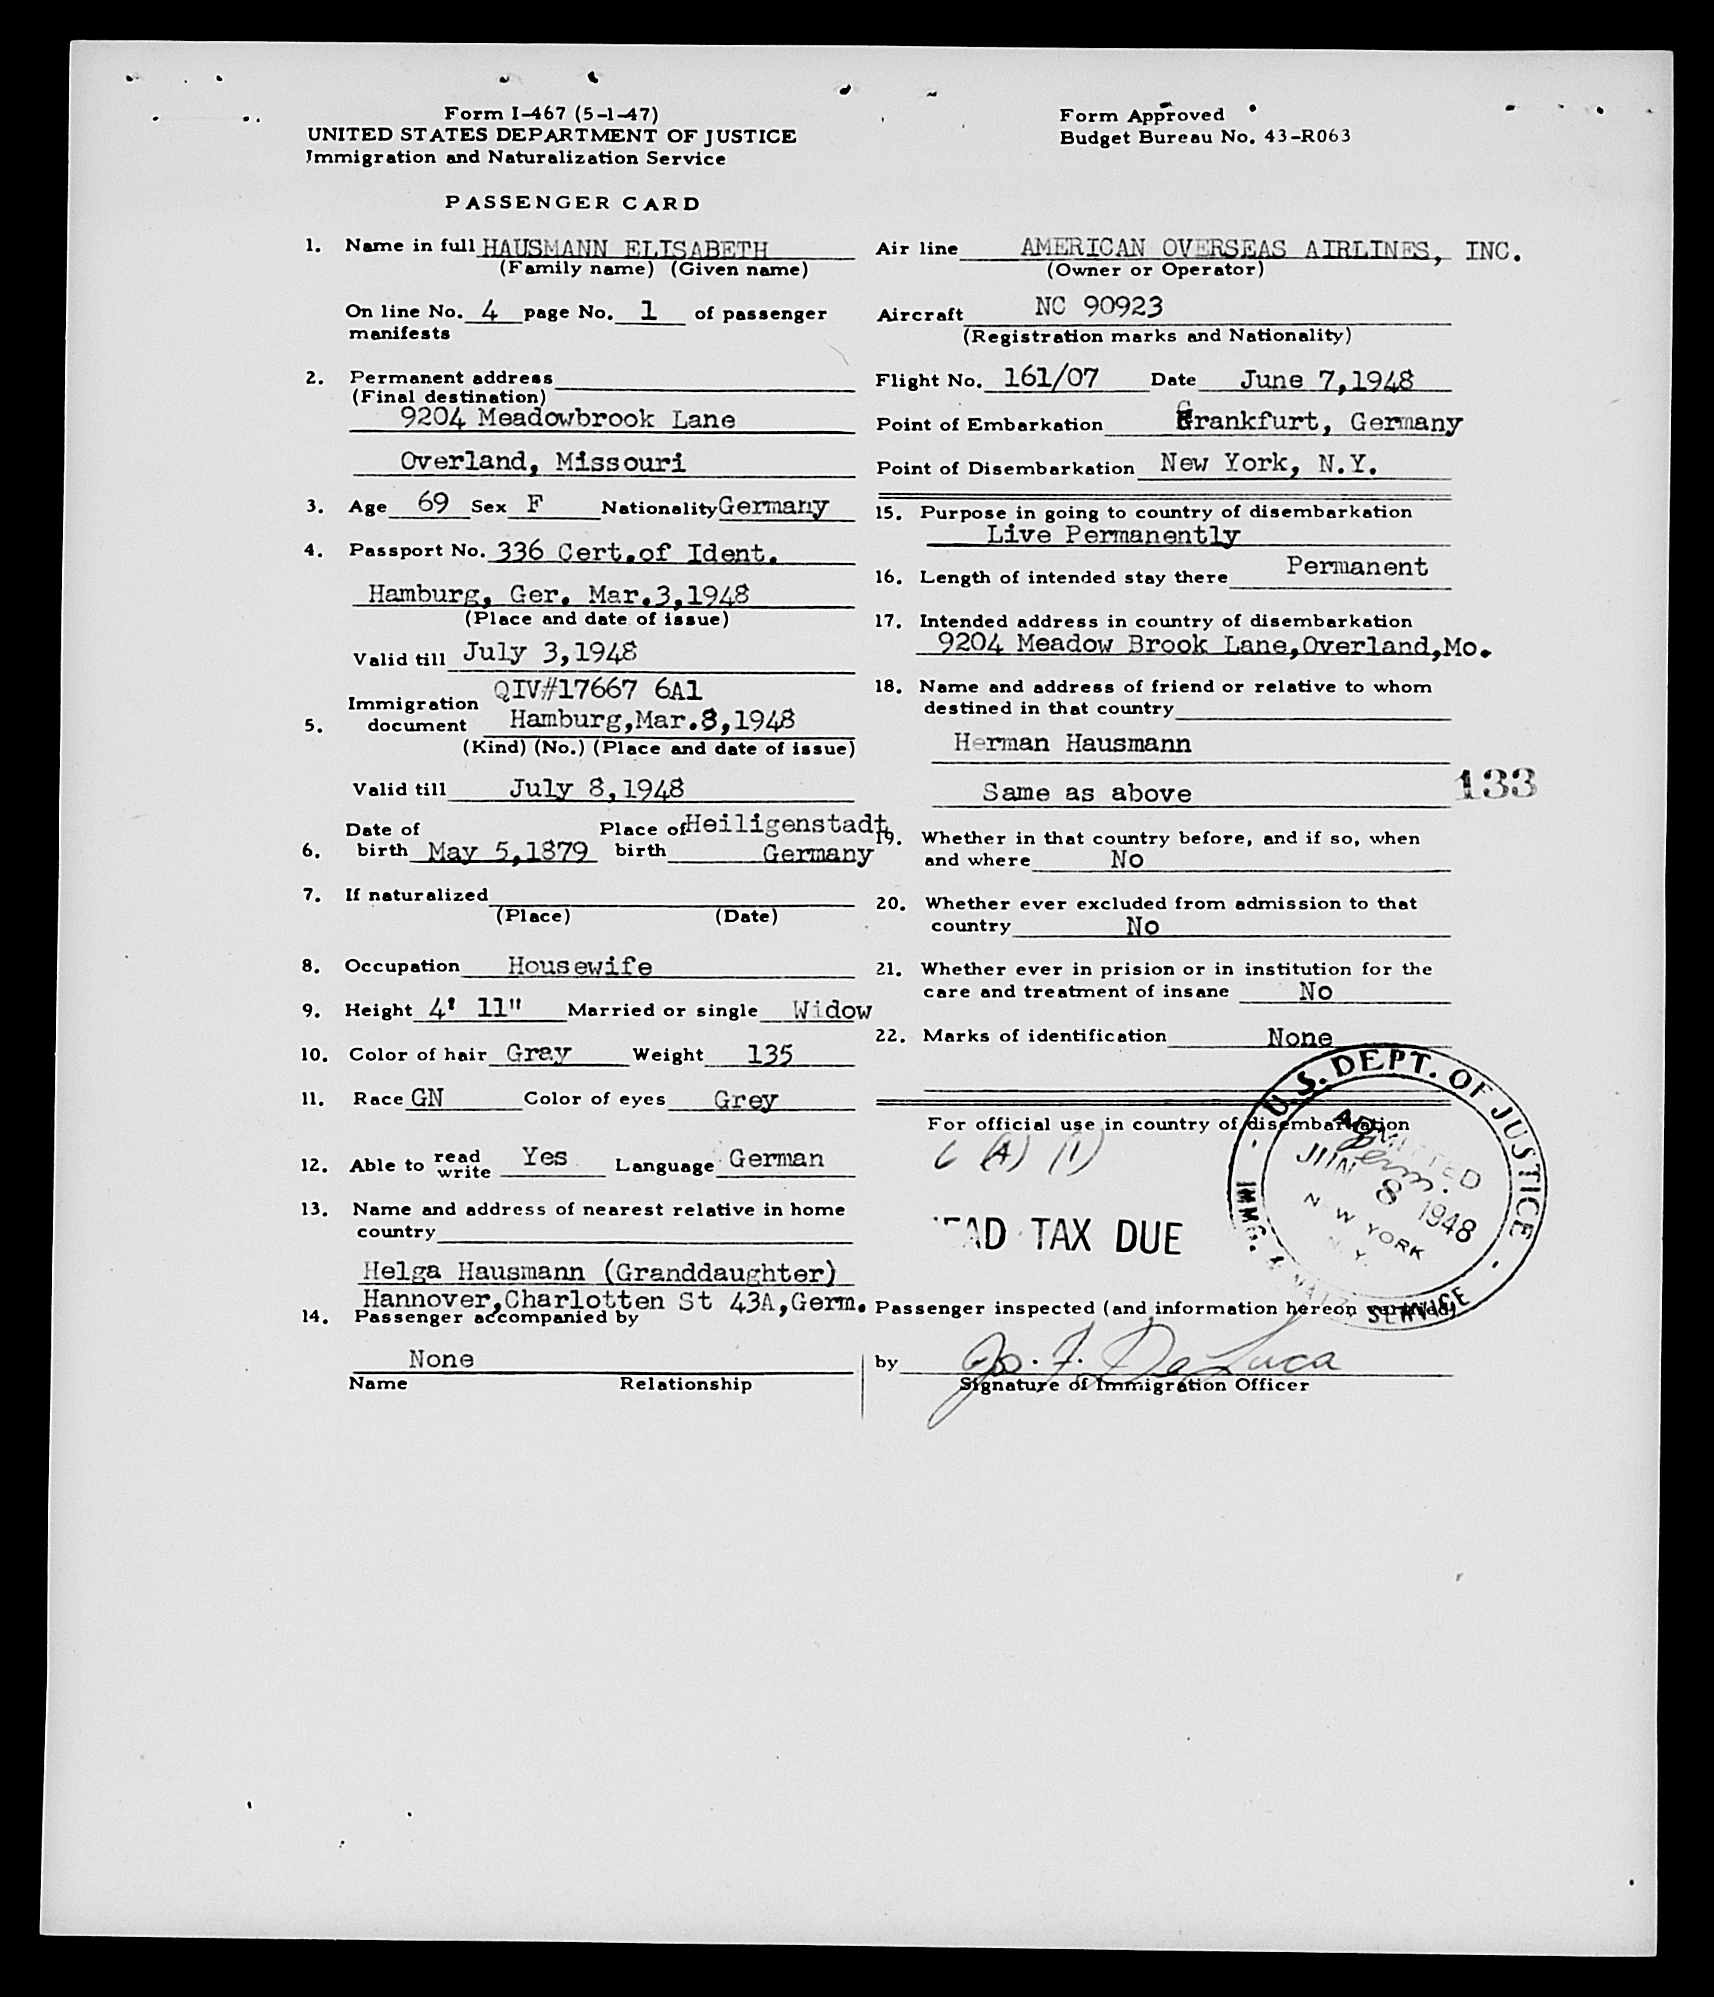 Form I-467 (5-1-47)
UNITED STATES DEPARTMENT OF JUSTICE
Immigration and Naturalization Service
Form Approved
Budget Bureau No. 43-R063
PASSENGER CARD
1. Name in full HAUSMANN ELISABETH
(Family name) (Given name)
On line No. 4 page No. 1 of passenger
manifests
2. Permanent address
(Final destination)
9204 Meadowbrook Lane
Overland, Missouri
3. Age 69 Sex F Nationality Germany
4. Passport No. 336 Cert.of Ident.
Hamburg, Ger. Mar.3,1948
(Place and date of issue)
Valid till July 3,1948
QIV#17667 6A1
Immigration
5. document Hamburg,Mar.8,1948
(Kind) (No.) (Place and date of issue)
Valid till July 8,1948
Date of Place of Heiligenstadt
6. birth May 5,1879 birth Germany
7. If naturalized
(Place) (Date)
8. Occupation Housewife
9. Height 4' 11" Married or single Widow
10. Color of hair Gray Weight 135
11. Race GN Color of eyes Grey
12. Able to read write Yes Language German
13. Name and address of nearest relative in home
country
Helga Hausmann (Granddaughter)
Hannover,Charlotten St 43A,Germ.
14. Passenger accompanied by
None
Name Relationship
Air line AMERICAN OVERSEAS AIRLINES, INC.
(Owner or Operator)
Aircraft NC 90923
(Registration marks and Nationality)
Flight No. 161/07 Date June 7,1948
Point of Embarkation Frankfurt, Germany
Point of Disembarkation New York, N.Y.
15. Purpose in going to country of disembarkation
Live Permanently
16. Length of intended stay there Permanent
17. Intended address in country of disembarkation
9204 Meadow Brook Lane,Overland,Mo.
18. Name and address of friend or relative to whom
destined in that country
Herman Hausmann
Same as above
133
19. Whether in that country before, and if so, when
and where No
20. Whether ever excluded from admission to that
country No
21. Whether ever in prision or in institution for the
care and treatment of insane No
22. Marks of identification None
For official use in country of disembarkation
6 (A) (1)
TAX DUE
U.S. DEPT. OF JUSTICE
ADMITTED
Perm.
JUN 8 1948
NEW YORK
N.Y.
IMMG. & NATZ. SERVICE
Passenger inspected (and information hereon verified)
by Jos. F. De Luca
Signature of Immigration Officer